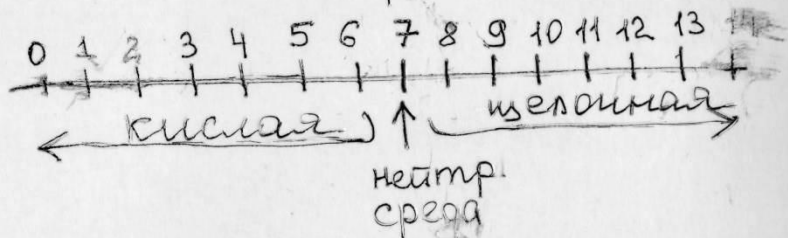 0 1 2 3 4 5 6 7 8 9 10 11 12 13 14
кислая щелочная
нейтр.
среда